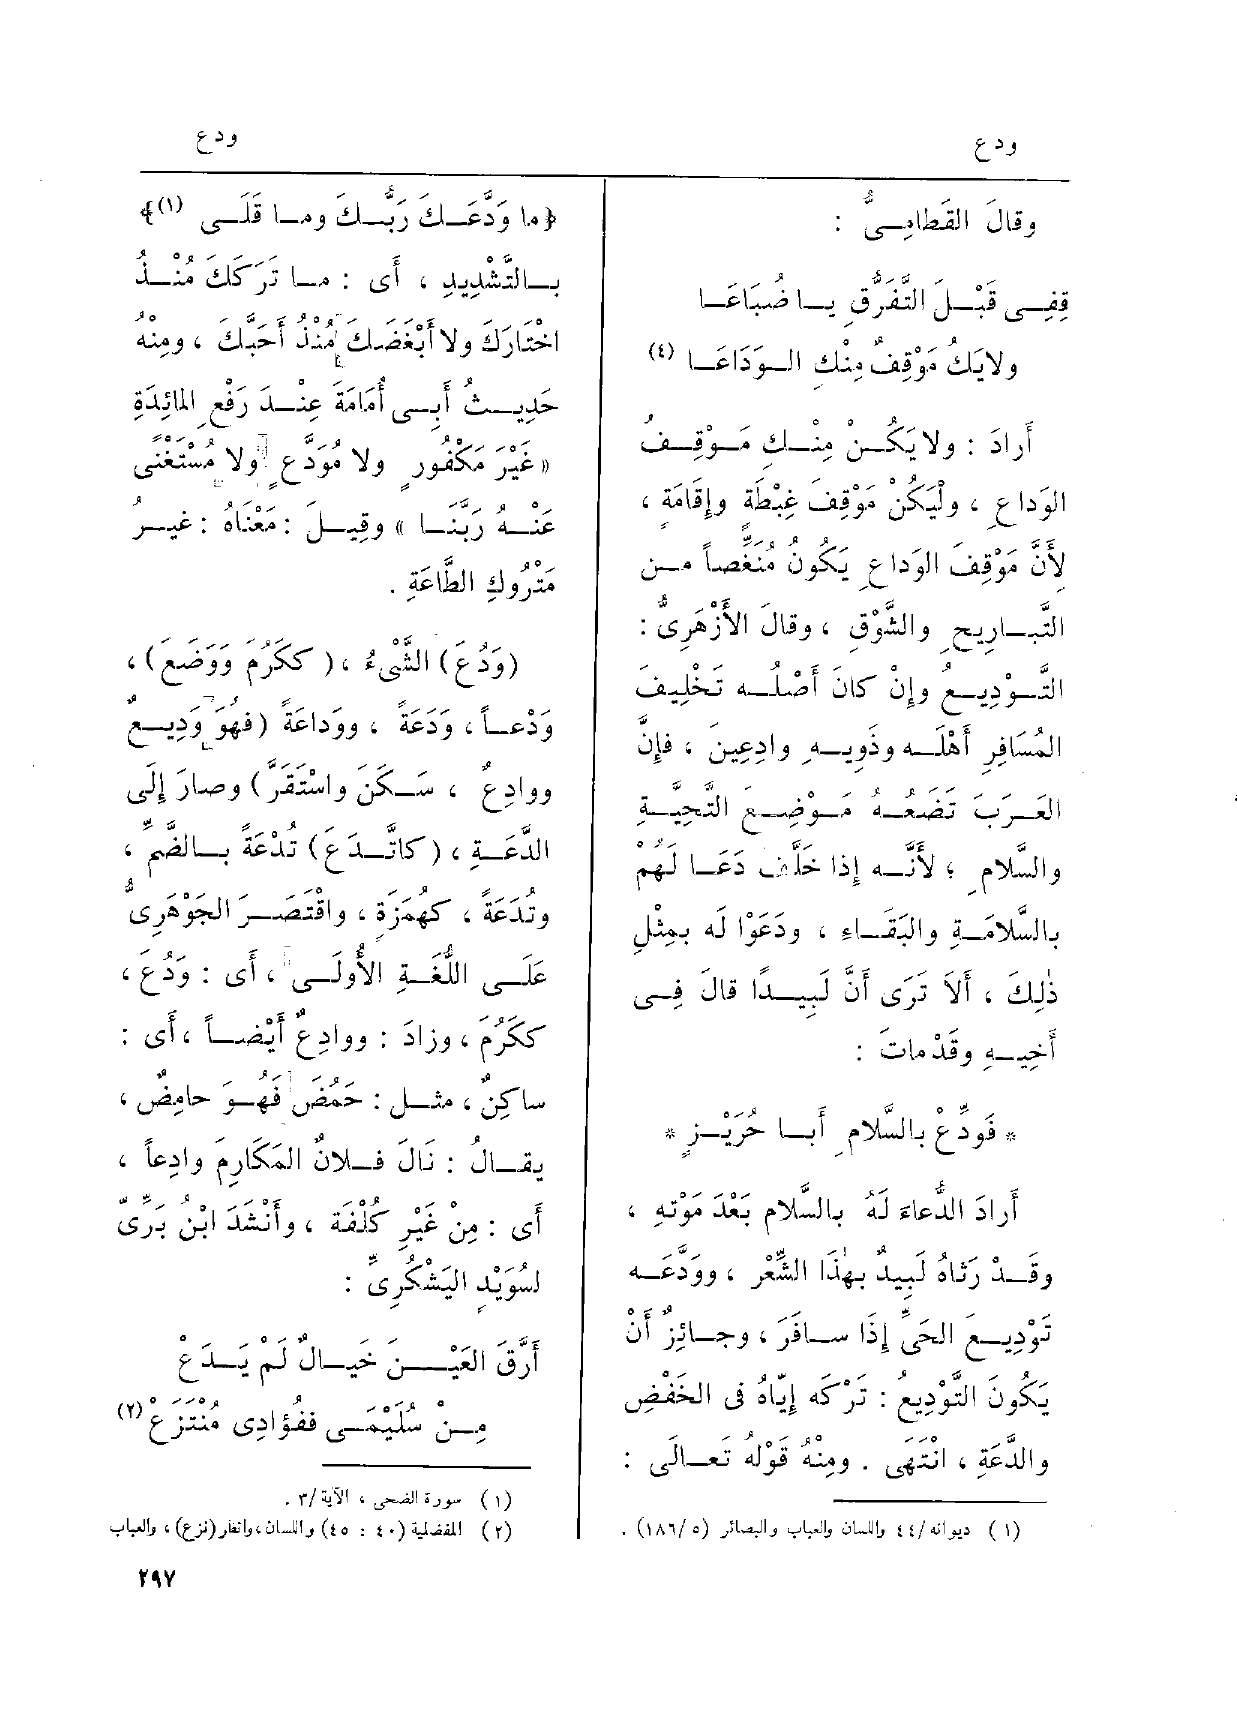 ودع
ودع
وقالَ القَطامِــىُّ :
قِفِــى قَبْــلَ التَّفَرُّقِ يــا ضُبَاعَــا
ولايَكُ مَوْقِفٌ مِنْكِ الــوَدَاعَــا (٤)
أرادَ : ولايَكُــنْ مِنْــكِ مَــوْقِــفُ
الوَداعِ ، ولْيَكُنْ مَوْقِفَ غِبْطَةٍ وإقَامَة ،
لِأَنَّ مَوْقِفَ الوَداعِ يَكُونُ مُنَغِّصاً مــن
التَّبــارِيحِ والشَّوْقِ ، وقالَ الأَزْهَرِىُّ :
التَّــوْدِيــعُ وإنْ كانَ أَصْلُــه تَخْلِيفَ
المُسَافِرِ أَهْلَــه وذَوِيــهِ وادِعِينَ ، فإنَّ
العَــرَبَ تَضَعُــهُ مَــوْضِــعَ التَّحِيَّــةِ
والسَّلامِ ؛ لأَنَّــه إذا خَلَّفَ دَعَــا لَهُمْ
بالسَّلامَــةِ والبَقَــاء ، ودَعَوْا لَه بمِثْلِ
ذٰلِكَ ، أَلاَ تَرَى أَنَّ لَبِيــدًا قالَ فِــى
أَخِيــهِ وقَدْ ماتَ :
* فَوَدِّعْ بالسَّلامِ أَبــا حُرَيْــزٍ *
أَرادَ الدُّعاءَ لَهُ بالسَّلامِ بَعْدَ مَوْتِه ،
وقَــدْ رَثاهُ لَبِيدٌ بهٰذَا الشِّعْرِ ، ووَدَّعَــه
تَوْدِيــعَ الحَىِّ إذَا ســافَرَ ، وجــائِزٌ أَنْ
يَكُونَ التَّوْدِيعُ : تَرْكَه إيّاهُ فى الخَفْضِ
والدَّعَةِ ، انْتَهَى . ومِنْهُ قَوْلُه تَعــالَى :
(١) ديوانه/٤٤ واللسان والعباب والبصائر (١٨٦/٥) .
﴿ما وَدَّعَــكَ رَبُّــكَ ومــا قَلَــى (١)﴾
بــالتَّشْدِيدِ ، أَى : مــا تَرَكَكَ مُنْــذُ
اخْتَارَكَ ولا أَبْغَضَكَ مُنْذُ أَحَبَّكَ ، ومِنْه
حَدِيــثُ أَبِــى أُمَامَةَ عِنْــدَ رَفْعِ المائِدَةِ
« غَيْرَ مَكْفُورٍ ولا مُوَدَّعٍ ولا مُسْتَغْنًى
عَنْــهُ رَبَّنَــا » وقِيــلَ : مَعْنَاه : غيــرُ
مَتْرُوكِ الطَّاعَةِ .
(وَدُعَ) الشَّىْءُ ، ( ككَرُمَ وَوَضَعَ) ،
وَدْعــاً ، وَدَعَةً ، ووَداعَةً (فهُوَ وَدِيــعٌ
ووادِعٌ ، سَــكَنَ واسْتَقَرَّ) وصارَ إِلَى
الدَّعَــةِ ، ( كاتَّــدَعَ) تُدْعَةً بــالضَّمِّ ،
وتُدَعَةً ، كَهُمَزَةٍ ، واقْتَصَــرَ الجَوْهَرِىُّ
عَلَــى اللُّغَــةِ الأُولَــى ، أَى : وَدُعَ ،
ككَرُمَ ، وزادَ : ووادِعٌ أَيْضــاً ، أَى :
ساكِنٌ ، مثــل : حَمُضَ فَهُــوَ حامِضٌ ،
يقــالُ : نَالَ فــلانٌ المَكَارِمَ وادِعاً ،
أى : مِنْ غَيْرِ كُلْفَة ، وأَنْشَدَ ابْنُ بَرِّىّ
لسُوَيْدٍ اليَشْكُرِىِّ :
أَرَّقَ العَيْــنَ خَيــالٌ لَمْ يَــدَعْ
مِــنْ سُلَيْمَــى ففُؤادِى مُنْتَزَعْ (٢)
(١) سورة الضحى ، الآية/٣ .
(٢) المفضلية (٤٠ : ٤٥) واللسان، وانظر (نزع) ، والعباب
٢٩٧